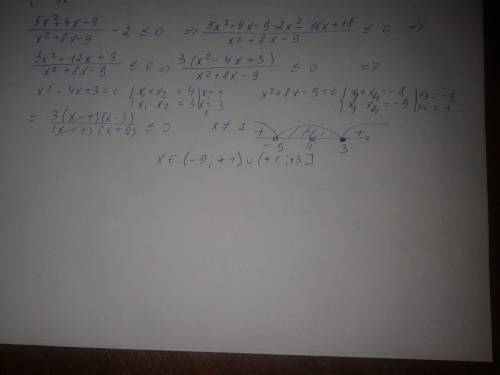 (5x²+4x-9)/(x²+8x-9) - 2 ≤ 0 => (5x²+4x-9-2x²-16x+18)/(x²+8x-9) ≤ 0 =>
(3x²-12x+9)/(x²+8x-9) ≤ 0 => 3(x²-4x+3)/(x²+8x-9) ≤ 0 =>
x²-4x+3=0 { x₁+x₂ = 4 | x₁=1 x²+8x-9=0 { x₃+x₄=-8 | x₃=-9
x₁ · x₂ = 3 | x₂=3 x₃ · x₄=-9 | x₄=1
= 3(x-1)(x-3)/(x-1)(x+9) ≤ 0 x≠1 + - +
-9 1 3
x∈(-9; +1)∪(+1;+3]